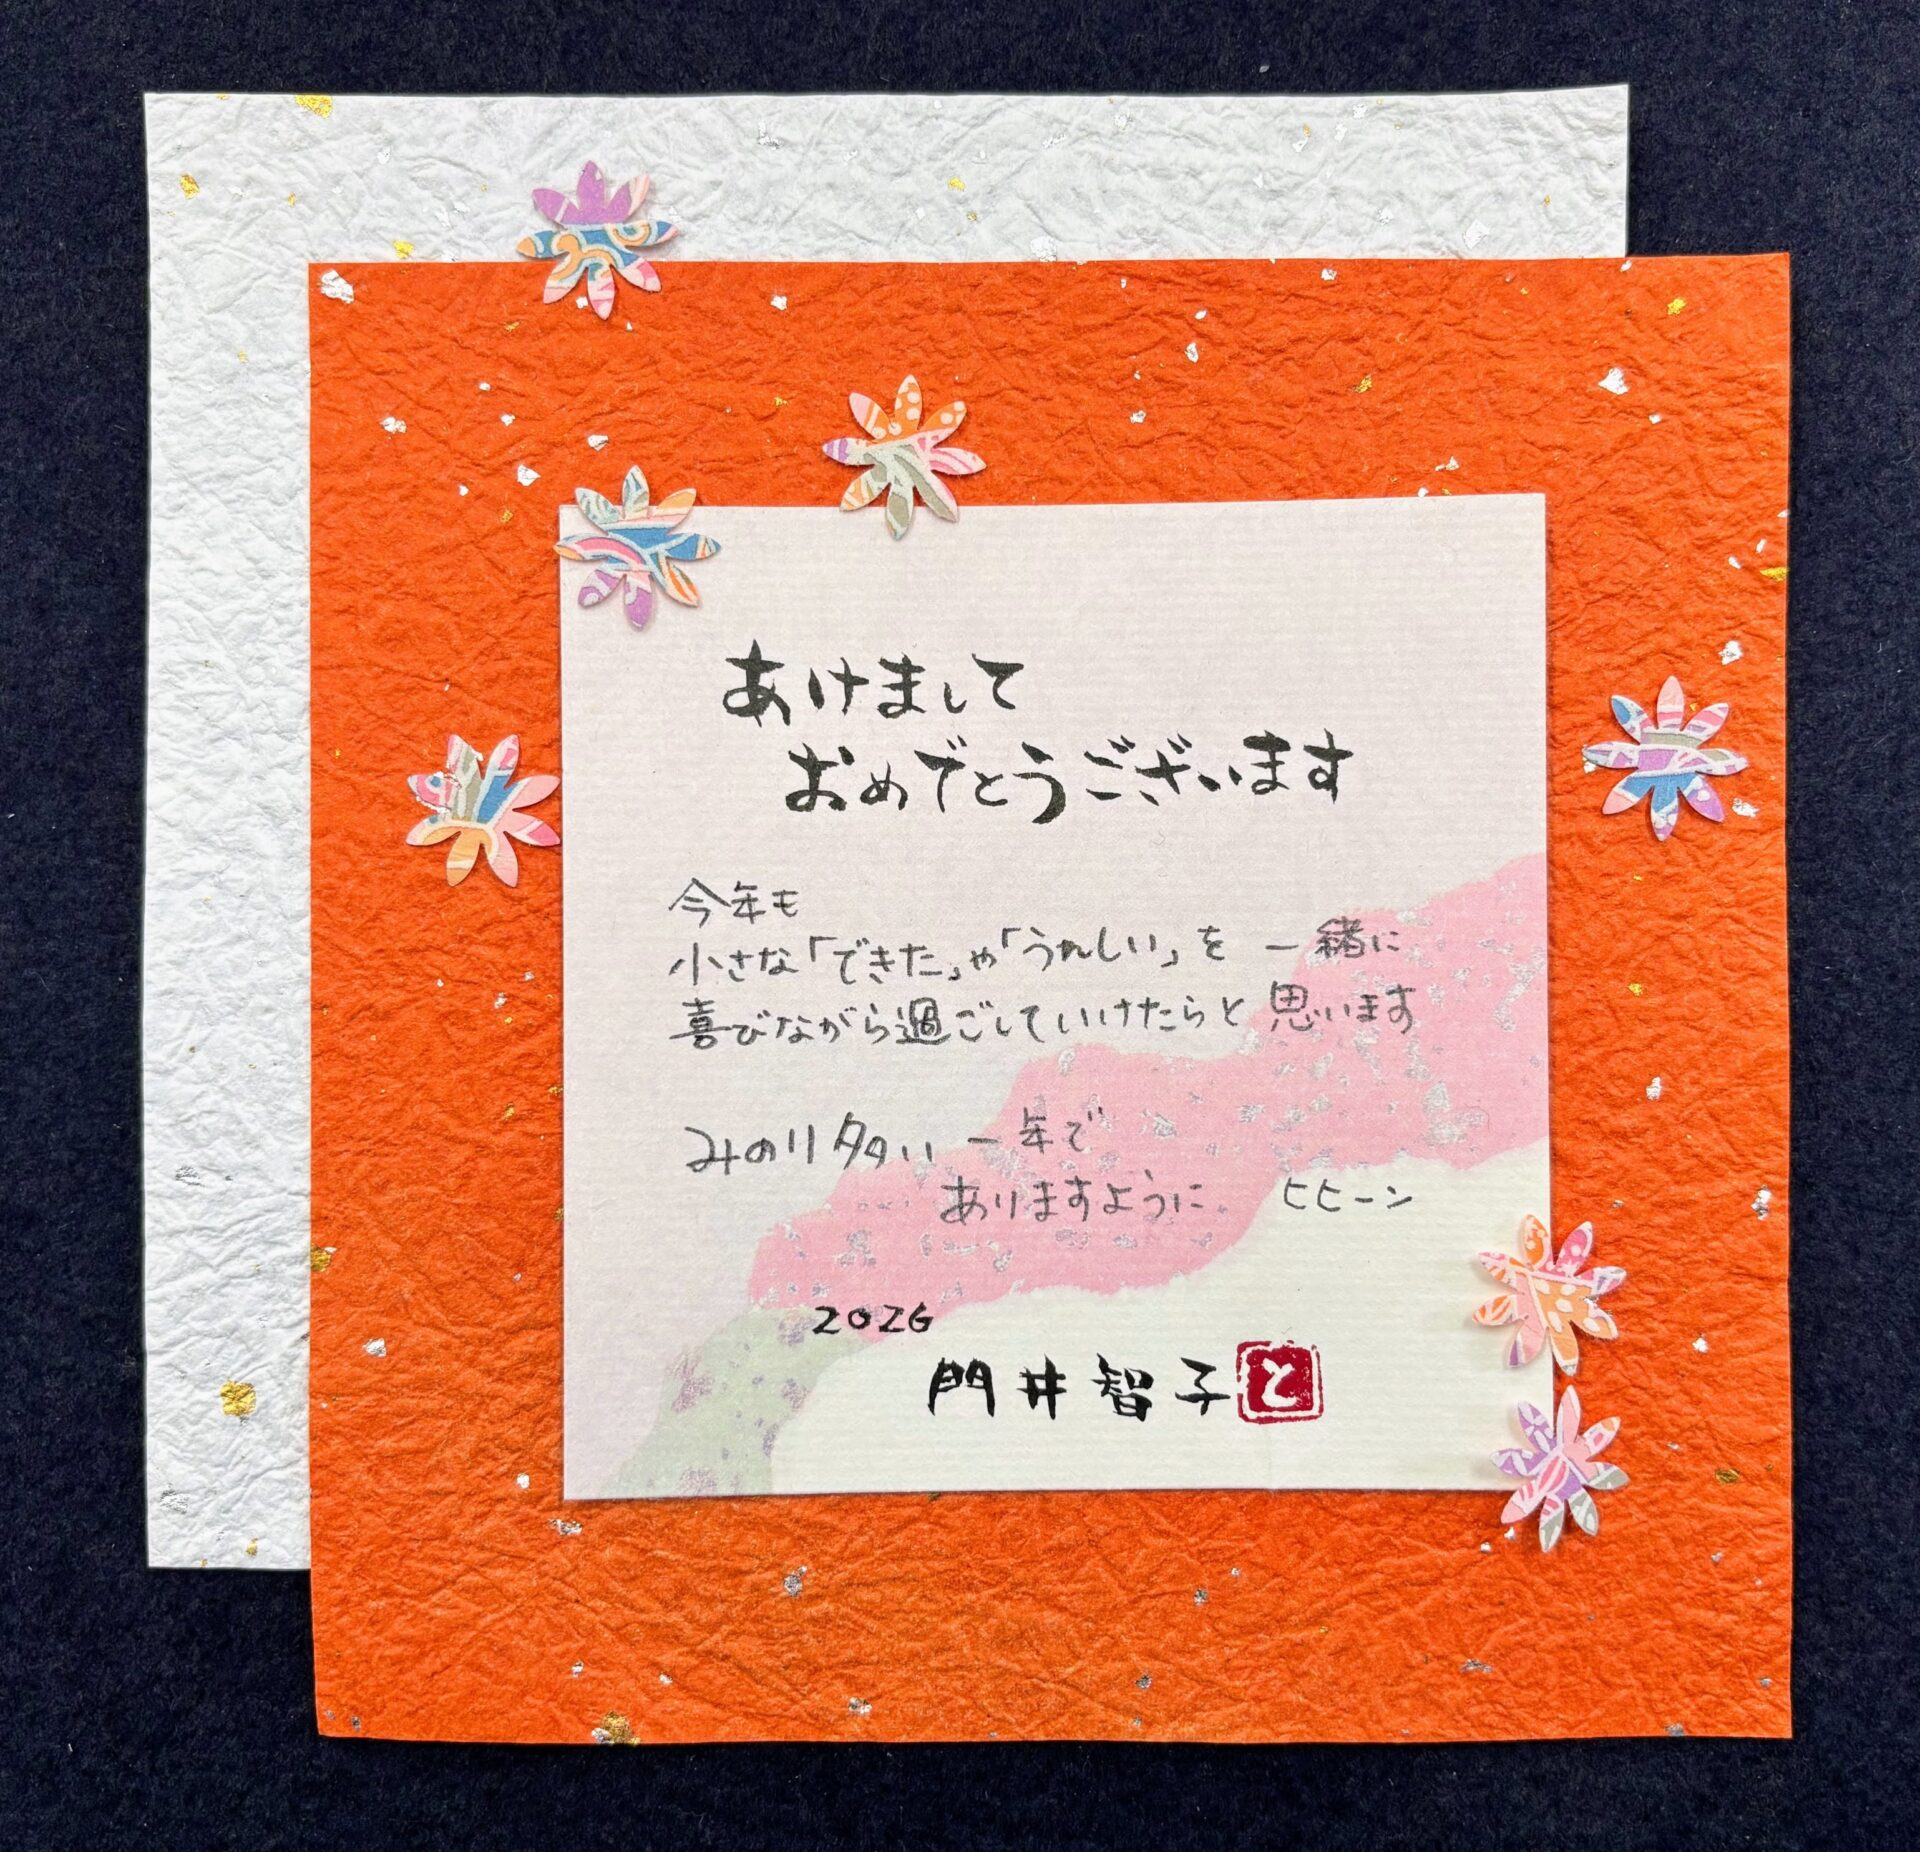 あけまして
おめでとうございます
今年も
小さな「できた」や「うれしい」を 一緒に
喜びながら過ごしていけたらと 思います
みのり多い 一年で
ありますように ヒヒーン
2026
門井智子 と